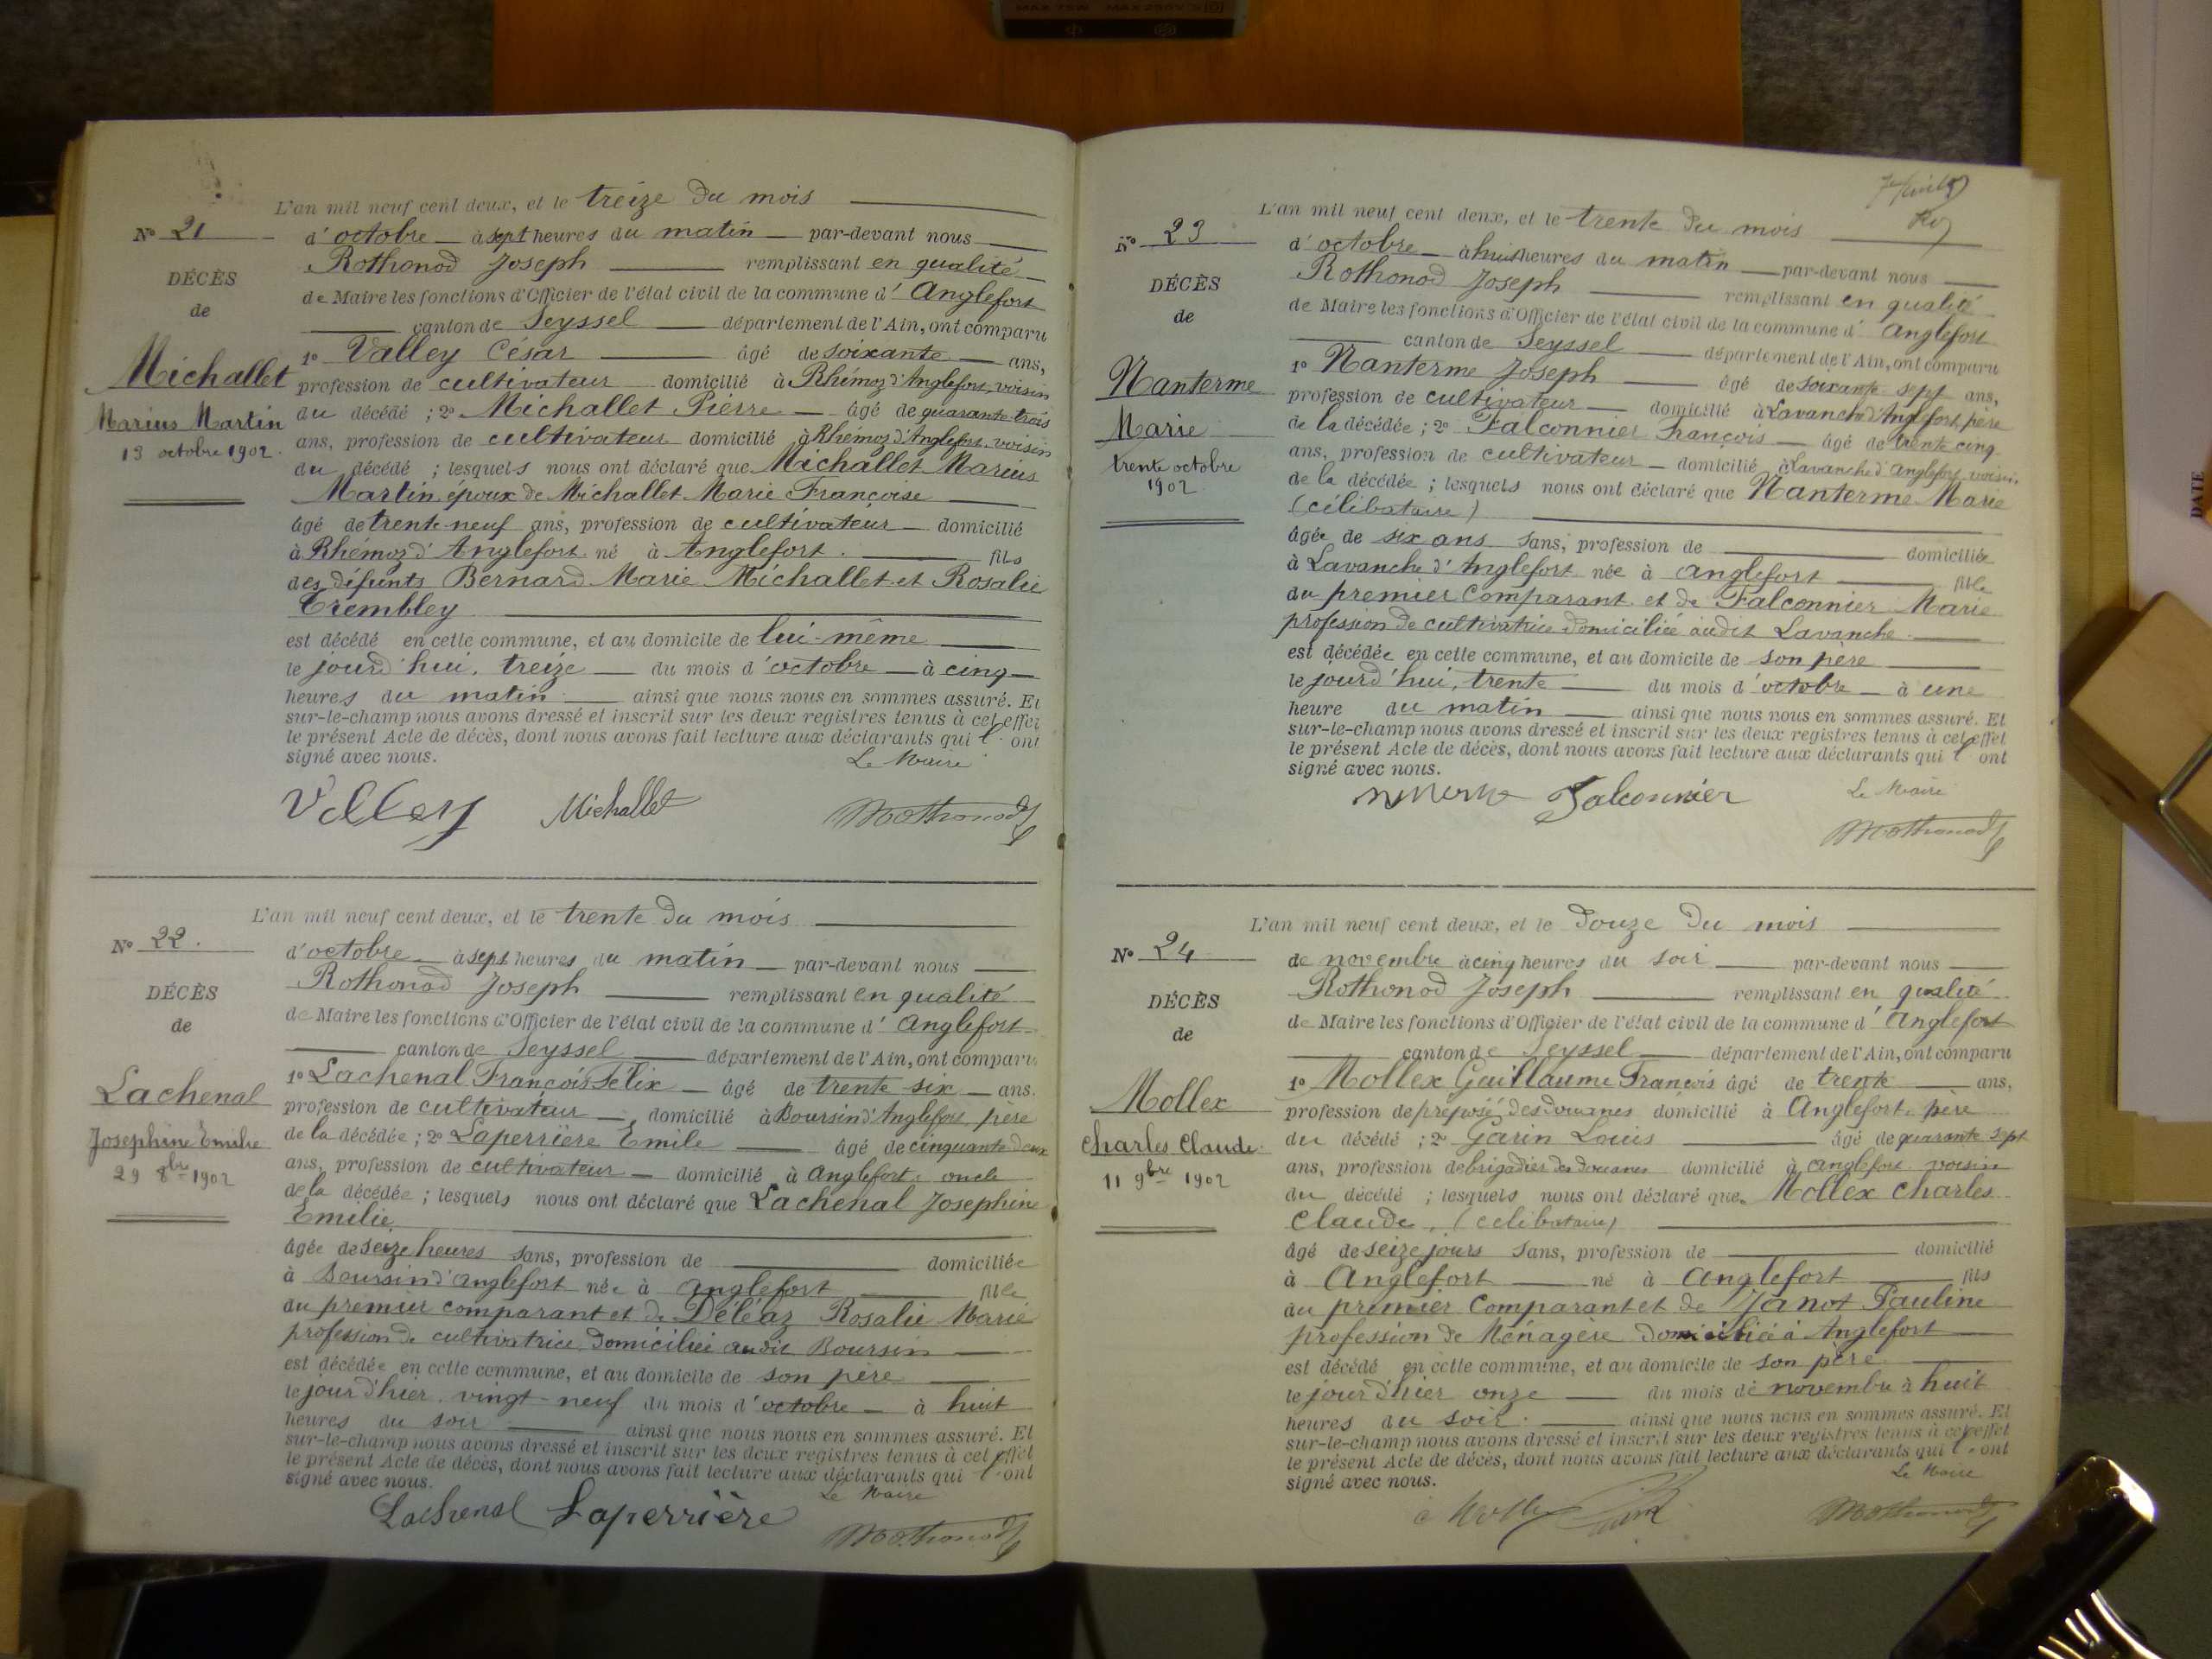 L'an mil neuf cent deux, et le treize du mois
N° 21
d'octobre à sept heures du matin par-devant nous
Rothonod Joseph remplissant en qualité
DÉCÈS
de Maire les fonctions d'Officier de l'état civil de la commune d'Anglefort
de
canton de Seyssel département de l'Ain, ont comparu
1° Valley César âgé de soixante ans,
Michallet
profession de cultivateur domicilié à Rhémoz d'Anglefort, voisin
Marius Martin
du décédé ; 2° Michallet Pierre âgé de quarante-trois
13 octobre 1902.
ans, profession de cultivateur domicilié à Rhémoz d'Anglefort, voisin
du décédé ; lesquels nous ont déclaré que Michallet Marius
Martin époux de Michallet Marie Françoise
âgé de trente-neuf ans, profession de cultivateur domicilié
à Rhémoz d'Anglefort né à Anglefort. fils
des défunts Bernard Marie Michallet et Rosalie
Trembley
est décédé en cette commune, et au domicile de lui-même
le jourd'hui, treize du mois d'octobre à cinq
heures du matin ainsi que nous nous en sommes assuré. Et
sur-le-champ nous avons dressé et inscrit sur les deux registres tenus à cet effet
le présent Acte de décès, dont nous avons fait lecture aux déclarants qui l'ont
signé avec nous.
Le Maire
Valley Michallet Rothonod
L'an mil neuf cent deux, et le trente du mois
N° 22.
d'octobre à sept heures du matin par-devant nous
Rothonod Joseph remplissant en qualité
DÉCÈS
de Maire les fonctions d'Officier de l'état civil de la commune d'Anglefort
de
canton de Seyssel département de l'Ain, ont comparu
1° Lachenal François Félix âgé de trente six ans.
Lachenal
profession de cultivateur, domicilié à Boursin d'Anglefort père
Josephine Emilie
de la décédée ; 2° Laperrière Emile âgé de cinquante deux
29 8bre 1902
ans, profession de cultivateur domicilié à Anglefort, oncle
de la décédée ; lesquels nous ont déclaré que Lachenal Josephine
Emilie
âgée de seize heures sans, profession de domiciliée
à Boursin d'Anglefort née à Anglefort fille
du premier comparant et de Déléaz Rosalie Marie
profession de cultivatrice domiciliée audit Boursin
est décédée en cette commune, et au domicile de son père
le jour d'hier vingt-neuf du mois d'octobre à huit
heures du soir ainsi que nous nous en sommes assuré. Et
sur-le-champ nous avons dressé et inscrit sur les deux registres tenus à cet effet
le présent Acte de décès, dont nous avons fait lecture aux déclarants qui l'ont
signé avec nous.
Le Maire
Lachenal Laperrière Rothonod
L'an mil neuf cent deux, et le trente du mois
N° 23
d'octobre à huit heures du matin par-devant nous
Rothonod Joseph remplissant en qualité
DÉCÈS
de Maire les fonctions d'Officier de l'état civil de la commune d'Anglefort
de
canton de Seyssel département de l'Ain, ont comparu
1° Nanterme Joseph âgé de soixante-sept ans,
Nanterme
profession de cultivateur domicilié à Lavanche d'Anglefort, père
Marie
de la décédée ; 2° Falconnier François âgé de trente cinq
trente octobre
1902
ans, profession de cultivateur domicilié à Lavanche d'Anglefort, voisin.
de la décédée ; lesquels nous ont déclaré que Nanterme Marie
(célibataire)
âgée de six ans sans, profession de domiciliée
à Lavanche d'Anglefort née à Anglefort fille
du premier comparant et de Falconnier Marie
profession de cultivatrice domiciliée audit Lavanche.
est décédée en cette commune, et au domicile de son père
le jourd'hui, trente du mois d'octobre à une
heure du matin ainsi que nous nous en sommes assuré. Et
sur-le-champ nous avons dressé et inscrit sur les deux registres tenus à cet effet
le présent Acte de décès, dont nous avons fait lecture aux déclarants qui l'ont
signé avec nous.
Le Maire
Falconnier Rothonod
L'an mil neuf cent deux, et le douze du mois
N° 24
de novembre à cinq heures du soir par-devant nous
Rothonod Joseph remplissant en qualité
DÉCÈS
de Maire les fonctions d'Officier de l'état civil de la commune d'Anglefort
de
canton de Seyssel département de l'Ain, ont comparu
1° Mollex Guillaume François âgé de trente ans,
Mollex
profession de préposé des douanes domicilié à Anglefort, père
Charles Claude.
du décédé ; 2° Garin Louis âgé de quarante sept
11 9bre 1902
ans, profession de brigadier des douanes domicilié à Anglefort voisin
du décédé ; lesquels nous ont déclaré que Mollex Charles
Claude, (célibataire)
âgé de seize jours sans, profession de domicilié
à Anglefort né à Anglefort fils
du premier comparant et de Janot Pauline
profession de Ménagère domiciliée à Anglefort
est décédé en cette commune, et au domicile de son père
le jour d'hier onze du mois de novembre à huit
heures du soir. ainsi que nous nous en sommes assuré. Et
sur-le-champ nous avons dressé et inscrit sur les deux registres tenus à cet effet
le présent Acte de décès, dont nous avons fait lecture aux déclarants qui l'ont
signé avec nous.
Le Maire
Rothonod
DATE